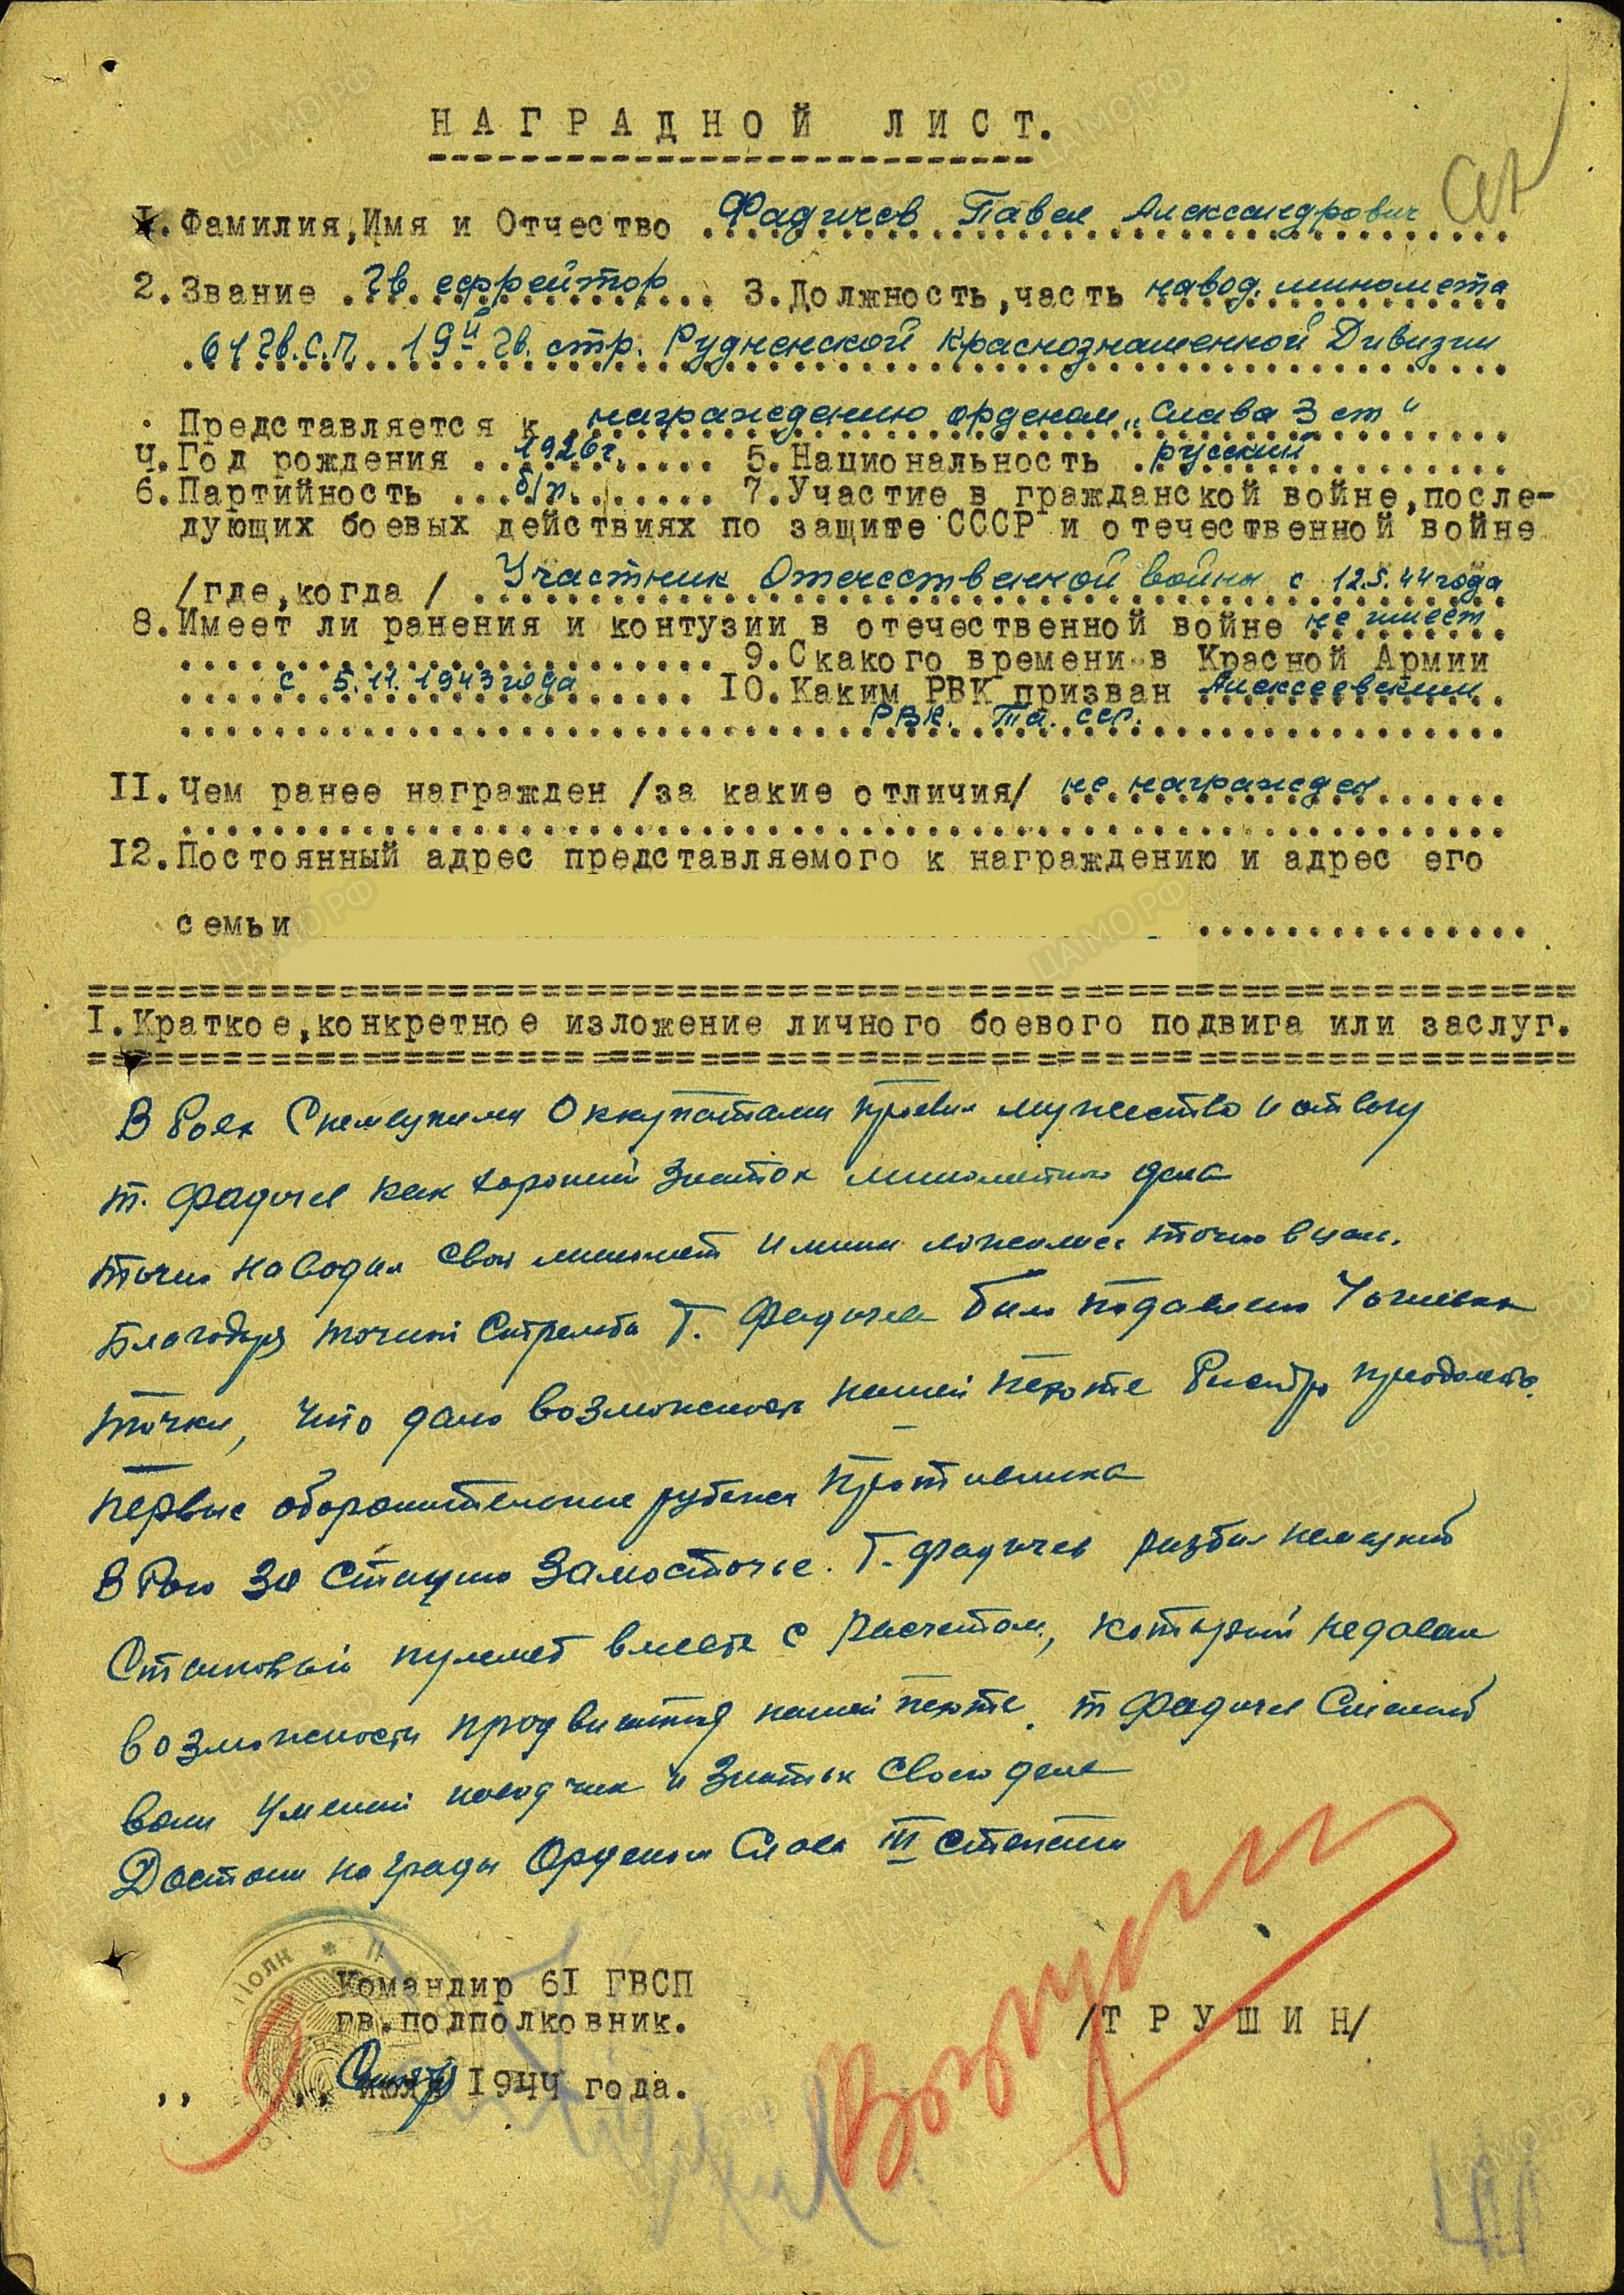 НАГРАДНОЙ ЛИСТ.
1. Фамилия, Имя и Отчество Фадичев Павел Александрович
2. Звание Гв. ефрейтор 3. Должность, часть навод. миномета
61 Гв.С.П. 19й Гв. стр. Рудненской Краснознаменной Дивизии
Представляется к награждению орденом „Слава 3 ст"
4. Год рождения 1926 г. 5. Национальность русский
6. Партийность б/п. 7. Участие в гражданской войне, после-
дующих боевых действиях по защите СССР и отечественной войне
/где, когда / Участник Отечественной войны с 12.5.44 года
8. Имеет ли ранения и контузии в отечественной войне не имеет
9. С какого времени в Красной Армии
с 5.11.1943 года 10. Каким РВК призван Алексеевским
РВК. Та. сср.
II. Чем ранее награжден /за какие отличия/ не награжден
I2. Постоянный адрес представляемого к награждению и адрес его
семьи
I. Краткое, конкретное изложение личного боевого подвига или заслуг.
В боях с немецкими оккупантами проявил мужество и отвагу
т. Фадичев как хороший знаток минометного дела
точно наводил свой миномет и мины ложились точно в цель.
Благодаря точной стрельбы т. Фадичева было подавлено 4 огневых
точки, что дало возможность нашей пехоте быстро преодолеть
первые оборонительные рубежи противника
В бою за станцию Замосточье. Т. Фадичев разбил немецкий
станковый пулемет вместе с расчетом, который не давал
возможности продвигаться нашей пехоте. т Фадичев смелый
воин умелый наводчик и знаток своего дела
Достоин награды Орденом Слава III степени
ПОЛК
Командир 6I ГВСП
гв. подполковник. /ТРУШИН/
,, ,, 1944 года.